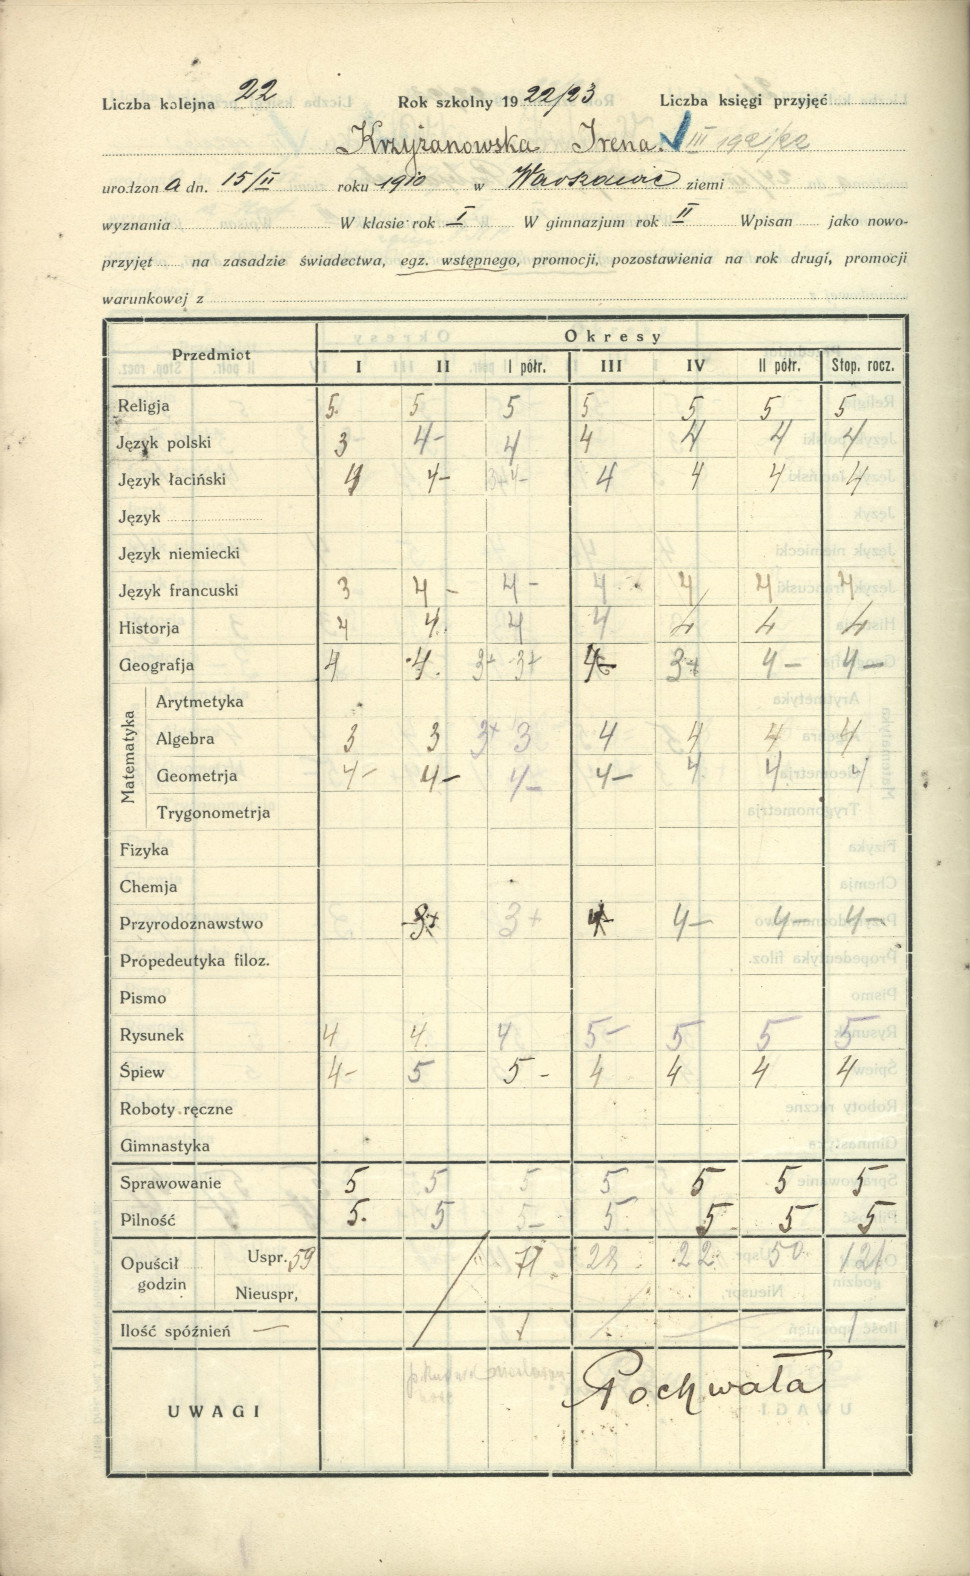 Liczba kolejna 22 Rok szkolny 1922/23 Liczba księgi przyjęć
Krzyżanowska Irena. III 1921/22
urodzona dn. 15/II roku 1910 w Warszawie ziemi
wyznania W klasie rok I W gimnazjum rok II Wpisan jako nowo-
przyjęt na zasadzie świadectwa, egz. wstępnego, promocji, pozostawienia na rok drugi, promocji
warunkowej z
Przedmiot Okresy
I II I półr. III IV II półr. Stop. rocz.
Religja 5. 5 5 5 5 5 5
Język polski 3 4- 4 4 4 4 4
Język łaciński 4 4- 3+4- 4 4 4 4
Język
Język niemiecki
Język francuski 3 4- 4- 4 4 4 4
Historja 4 4. 4 4 4 4 4
Geografja 4 4. 3+ 3+ 4- 3+ 4- 4-
Matematyka
Arytmetyka
Algebra 3 3 3+ 3 4 4 4 4
Geometrja 4- 4- 4- 4- 4 4 4
Trygonometrja
Fizyka
Chemja
Przyrodoznawstwo 3+ 3+ 4- 4- 4- 4-
Propedeutyka filoz.
Pismo
Rysunek 4 4. 4 5- 5 5 5
Śpiew 4- 5 5- 4 4 4 4
Roboty ręczne
Gimnastyka
Sprawowanie 5 5 5 5 5 5 5
Pilność 5. 5 5- 5 5 5 5
Opuścił godzin Uspr. 59 71 28 22 50 121
Nieuspr,
Ilość spóźnień — 1 1
UWAGI Pochwała